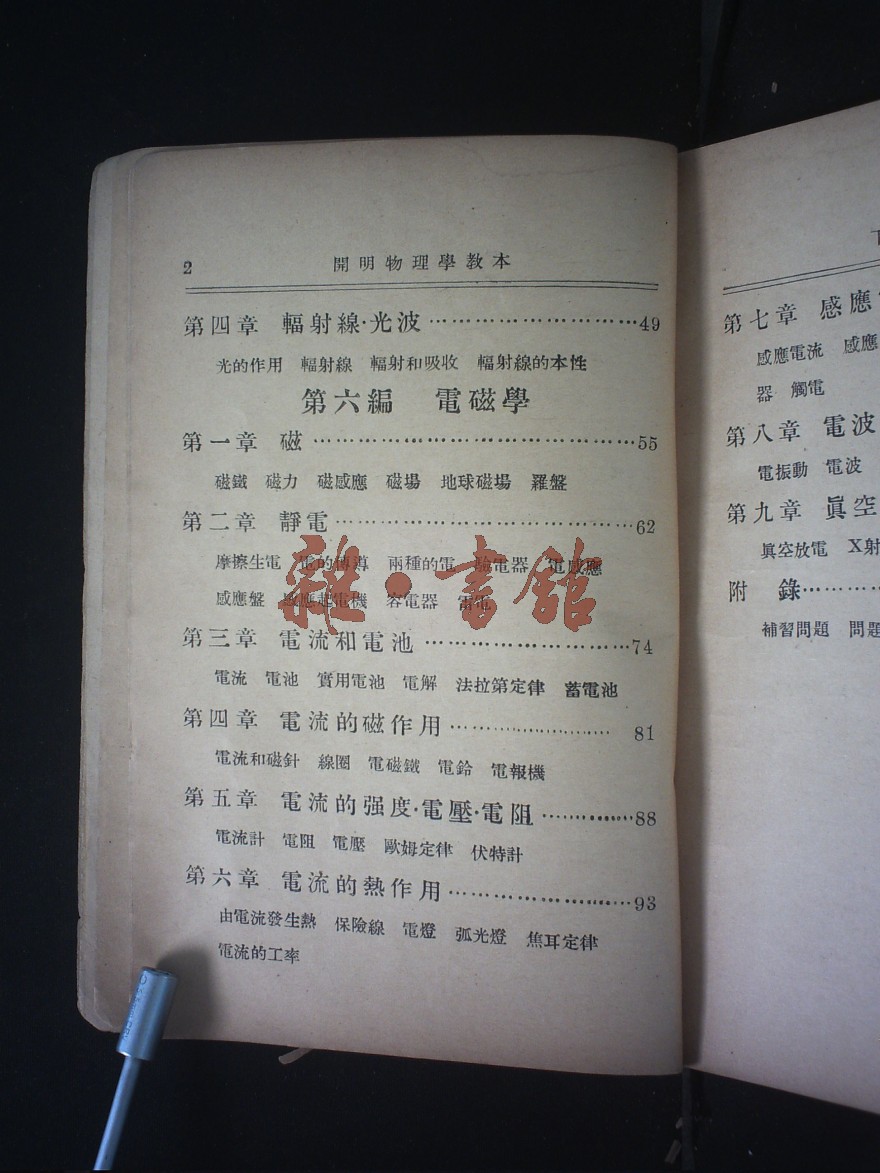 2
開明物理學教本
第四章 輻射線·光波………………………49
光的作用 輻射線 輻射和吸收 輻射線的本性
第六編 電磁學
第一章 磁……………………………………55
磁鐵 磁力 磁感應 磁場 地球磁場 羅盤
第二章 靜電…………………………………62
摩擦生電 電的傳導 兩種的電 驗電器 電感應
感應盤 感應起電機 容電器 雷電
第三章 電流和電池………………………74
電流 電池 實用電池 電解 法拉第定律 蓄電池
第四章 電流的磁作用…………………81
電流和磁針 線圈 電磁鐵 電鈴 電報機
第五章 電流的强度·電壓·電阻…………88
電流計 電阻 電壓 歐姆定律 伏特計
第六章 電流的熱作用……………………93
由電流發生熱 保險線 電燈 弧光燈 焦耳定律
電流的工率
雜·書館
第七章 感應
感應電流 感應
器 觸電
第八章 電波
電振動 電波
第九章 眞空
眞空放電 X射
附 錄………
補習問題 問題